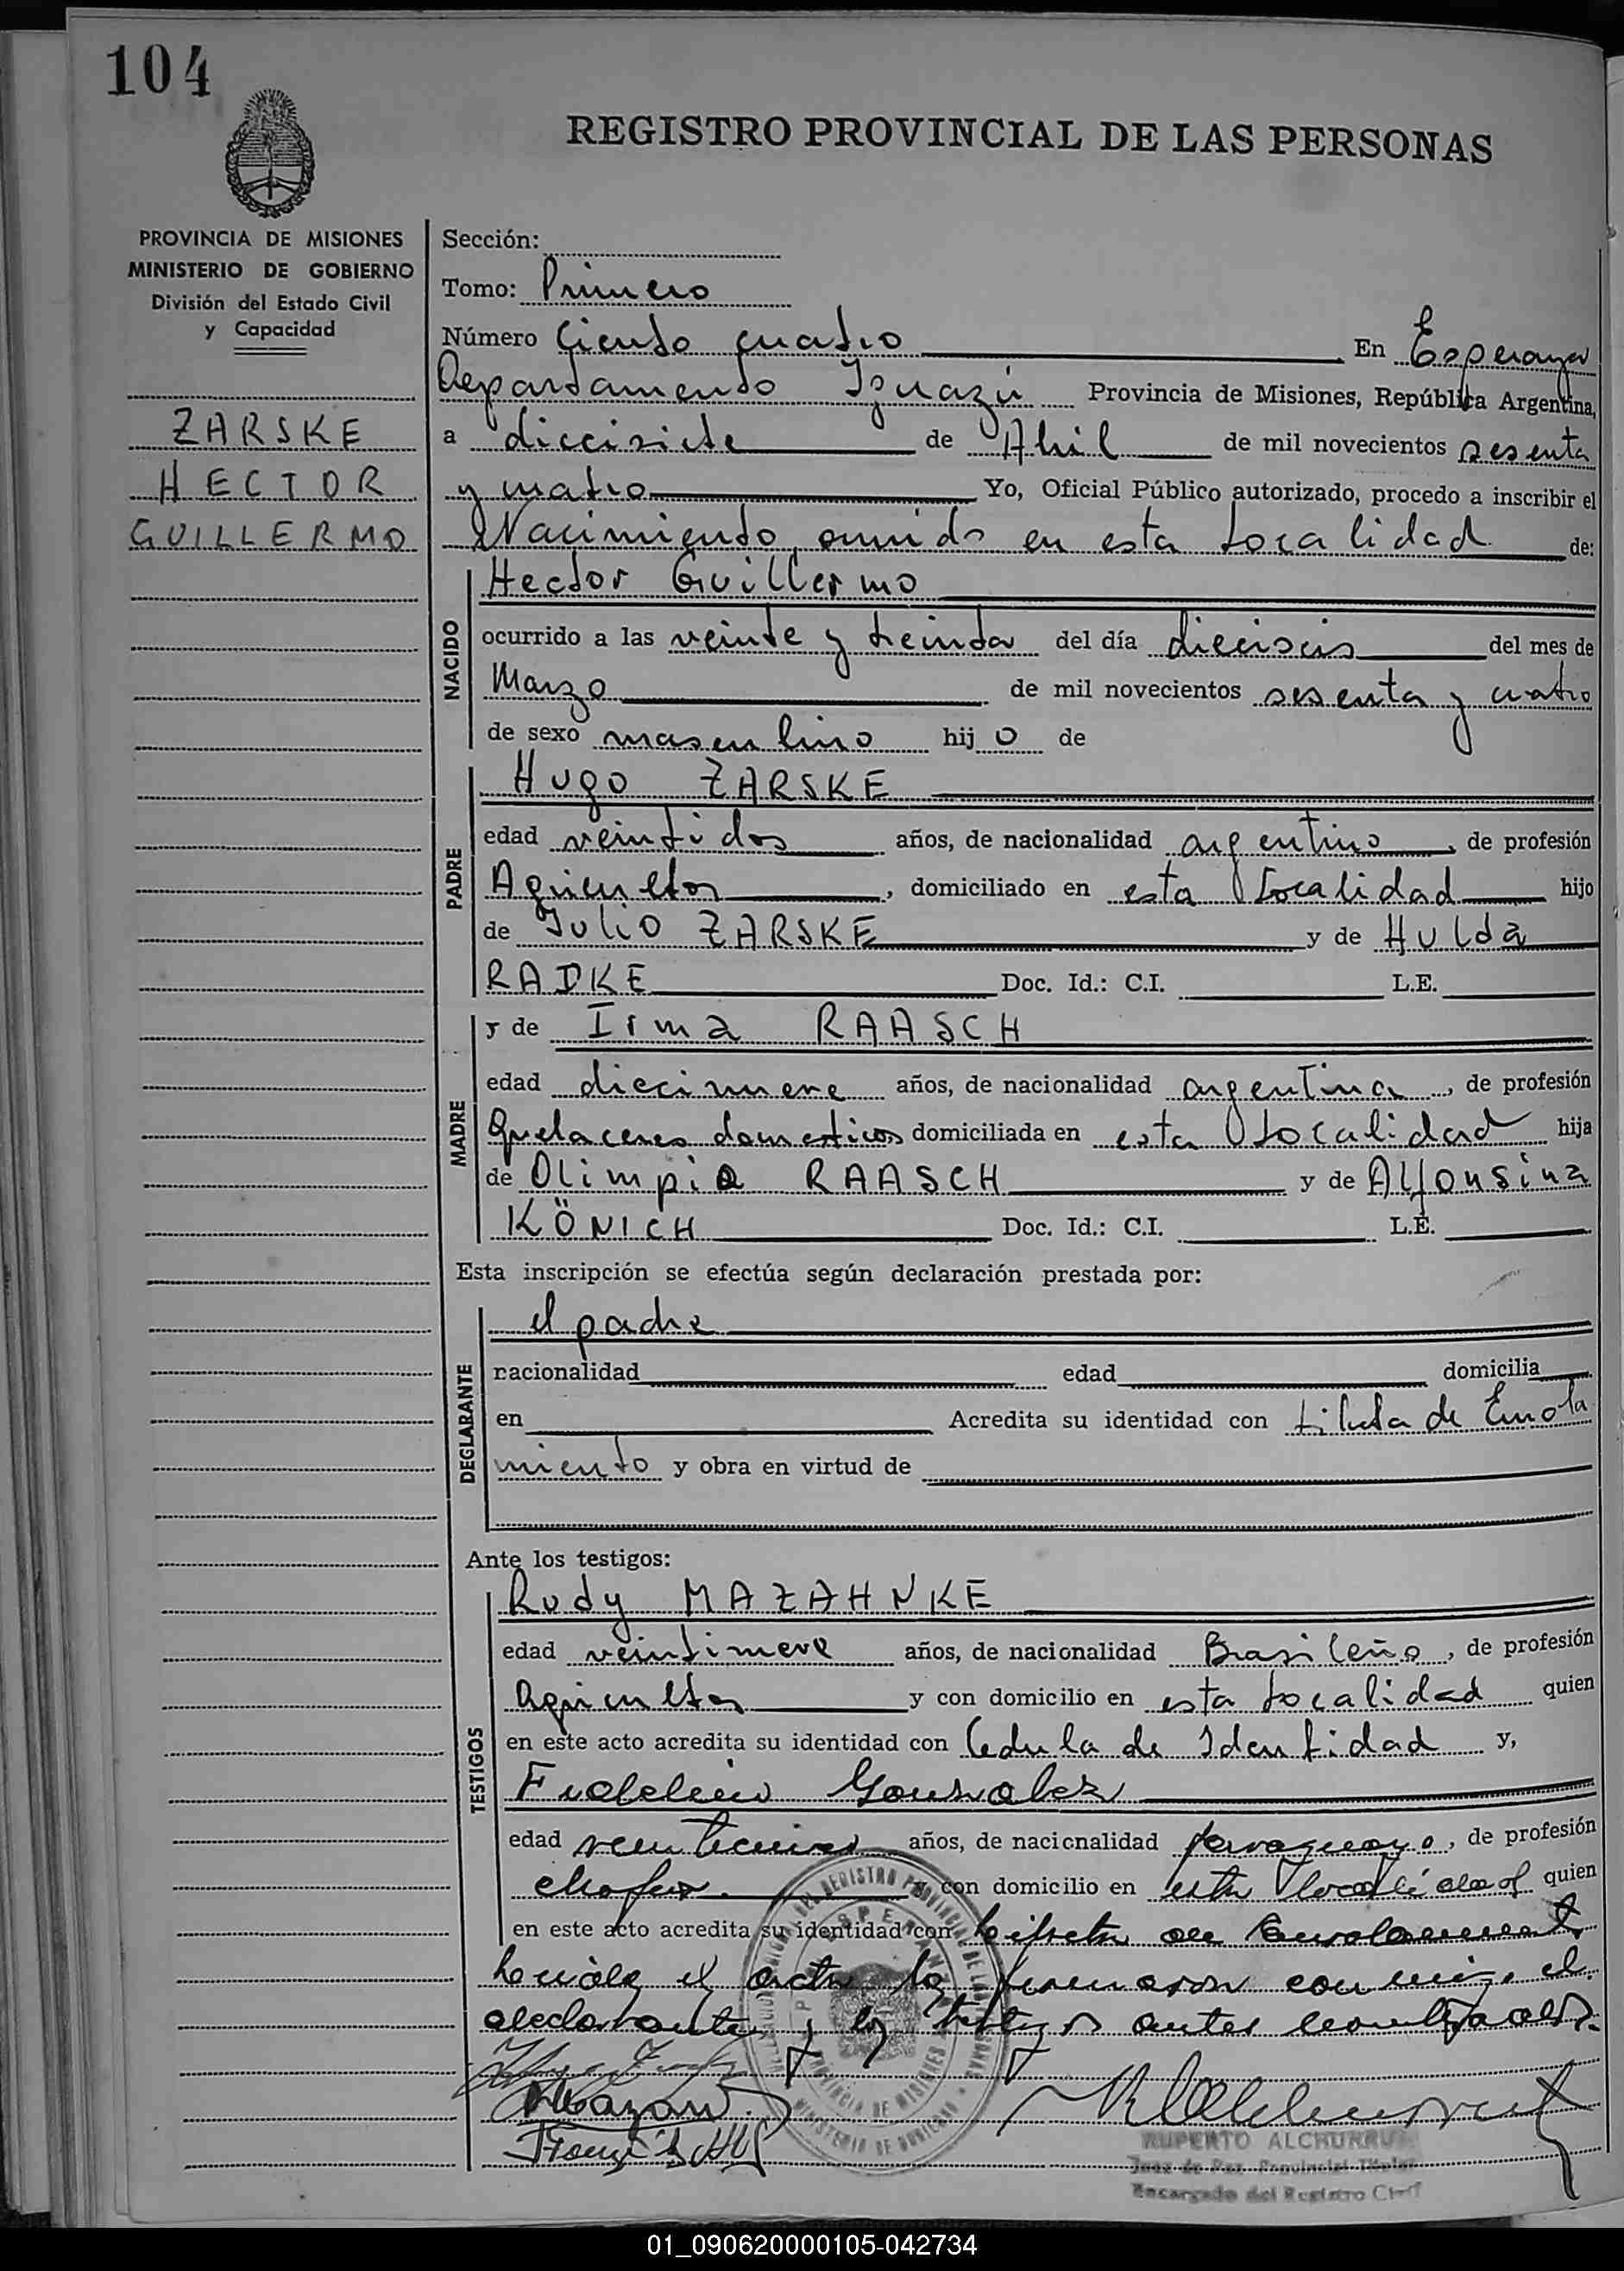 104
REGISTRO PROVINCIAL DE LAS PERSONAS
PROVINCIA DE MISIONES
MINISTERIO DE GOBIERNO
División del Estado Civil
y Capacidad
ZARSKE
HECTOR
GUILLERMO
Sección:
Tomo: Primero
Número Ciento cuatro En Esperanza
Departamento Iguazú Provincia de Misiones, República Argentina,
a diecisiete de Abril de mil novecientos sesenta
y cuatro Yo, Oficial Público autorizado, procedo a inscribir el
Nacimiento ocurrido en esta localidad de:
NACIDO
Hector Guillermo
ocurrido a las veinte y treinta del día dieciseis del mes de
Marzo de mil novecientos sesenta y cuatro
de sexo masculino hij o de
PADRE
Hugo ZARSKE
edad veintidos años, de nacionalidad argentino, de profesión
Agricultor, domiciliado en esta localidad hijo
de Julio ZARSKE y de Hulda
RADKE Doc. Id.: C.I. L.E.
MADRE
y de Irma RAASCH
edad diecinueve años, de nacionalidad argentina, de profesión
Quehaceres domesticos domiciliada en esta localidad hija
de Olimpio RAASCH y de Alfonsina
KÖNICH Doc. Id.: C.I. L.E.
Esta inscripción se efectúa según declaración prestada por:
DECLARANTE
el padre
nacionalidad edad domicilia
en Acredita su identidad con libreta de Enrola
miento y obra en virtud de
Ante los testigos:
TESTIGOS
Rudy MAZAHNKE
edad veintinueve años, de nacionalidad Brasileño, de profesión
Agricultor y con domicilio en esta localidad quien
en este acto acredita su identidad con Cedula de Identidad y,
Gonzalez
edad años, de nacionalidad paraguayo, de profesión
chofer. y con domicilio en esta localidad quien
en este acto acredita su identidad con libreta de Enrolamiento
el acta la firmaron conmigo el
declarante y los testigos antes nombrados.
RUPERTO ALCHURRUT
Juez de Paz Provincial Titular
Encargado del Registro Civil
01_090620000105-042734